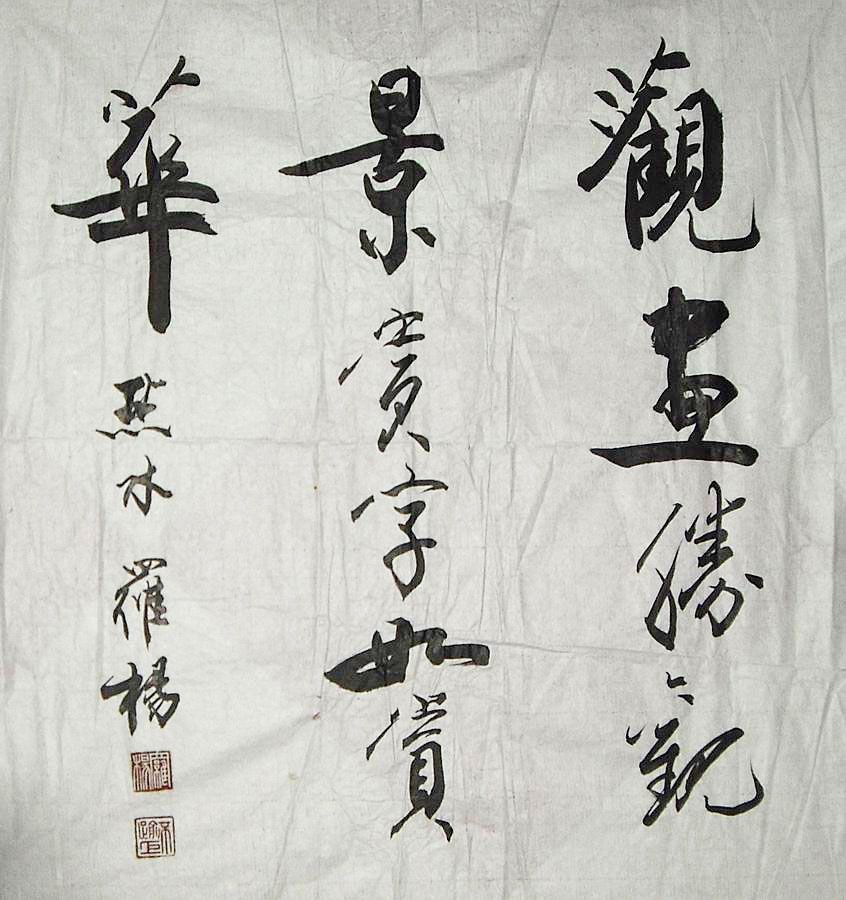 觀畫勝觀
景賞字如賞
華
燕水羅楊
羅楊